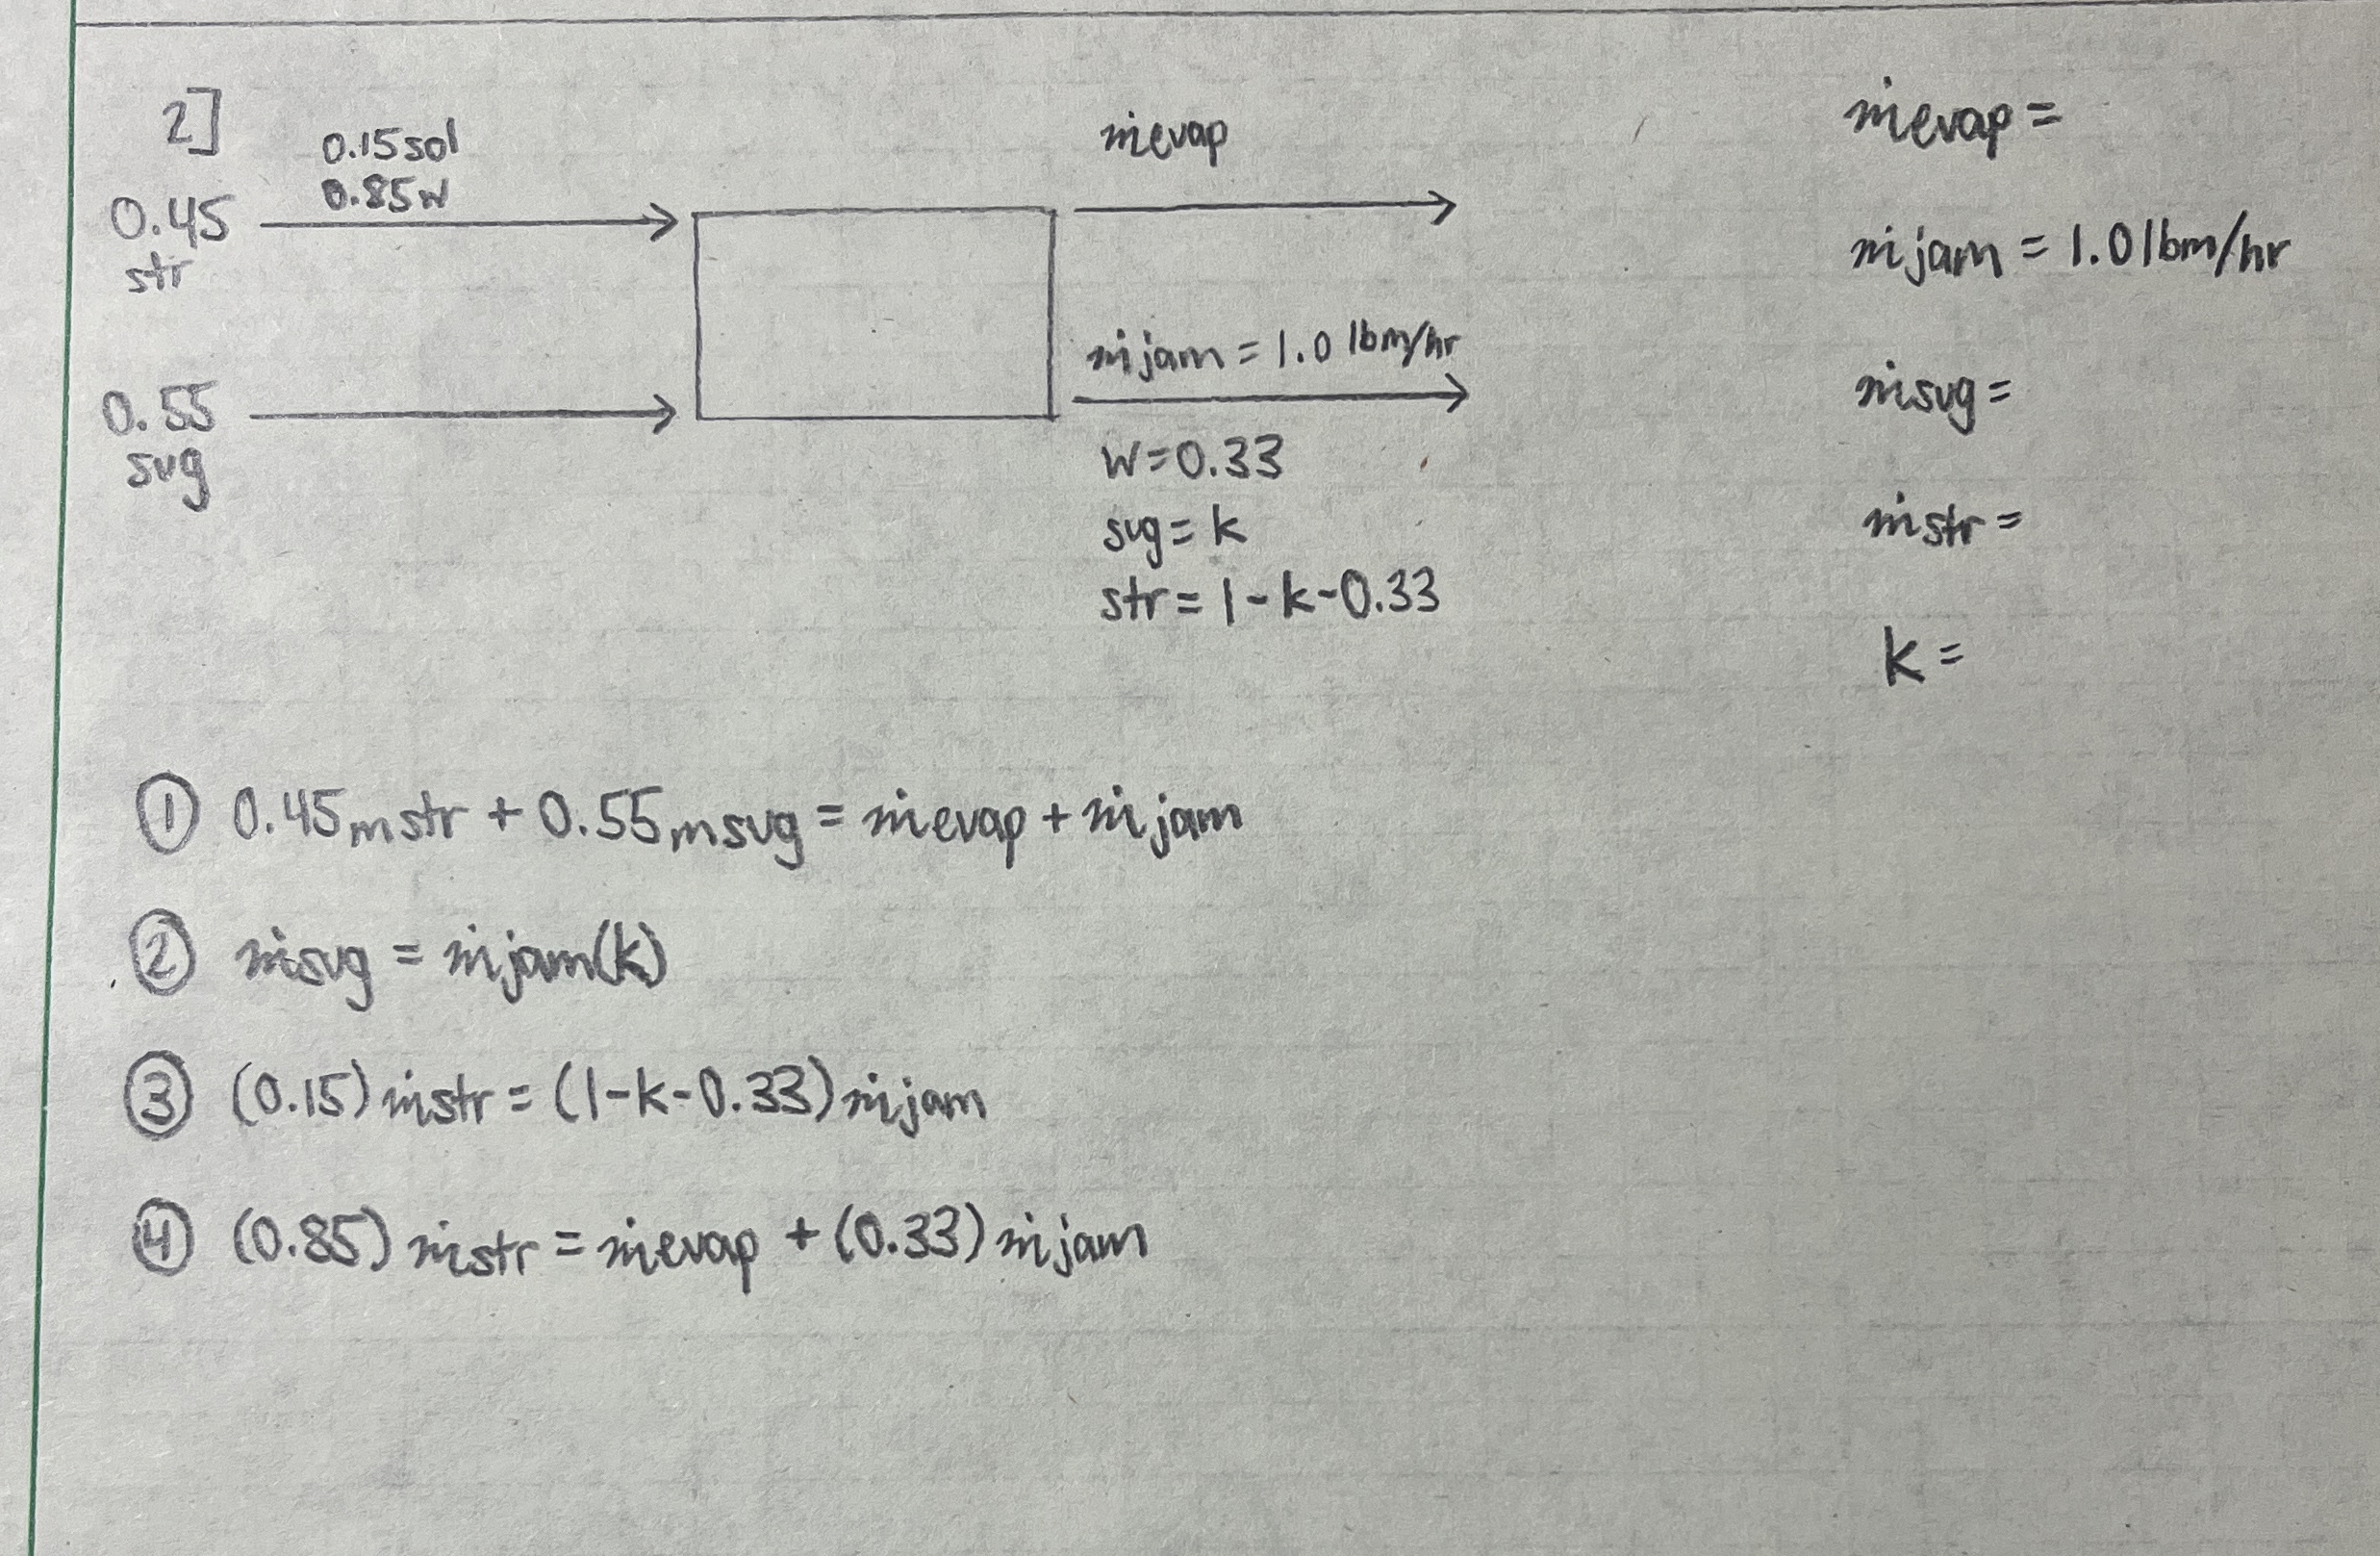 2]
0.15 sol
0.85 w
0.45
str
0.55
sug
ṁevap
ṁjam = 1.0 lbm/hr
w = 0.33
sug = k
str = 1 - k - 0.33
ṁevap =
ṁjam = 1.0 lbm/hr
ṁsug =
ṁstr =
k =
① 0.45 mstr + 0.55 msug = ṁevap + ṁjam
② ṁsug = ṁjam(k)
③ (0.15) ṁstr = (1-k-0.33) ṁjam
④ (0.85) ṁstr = ṁevap + (0.33) ṁjam